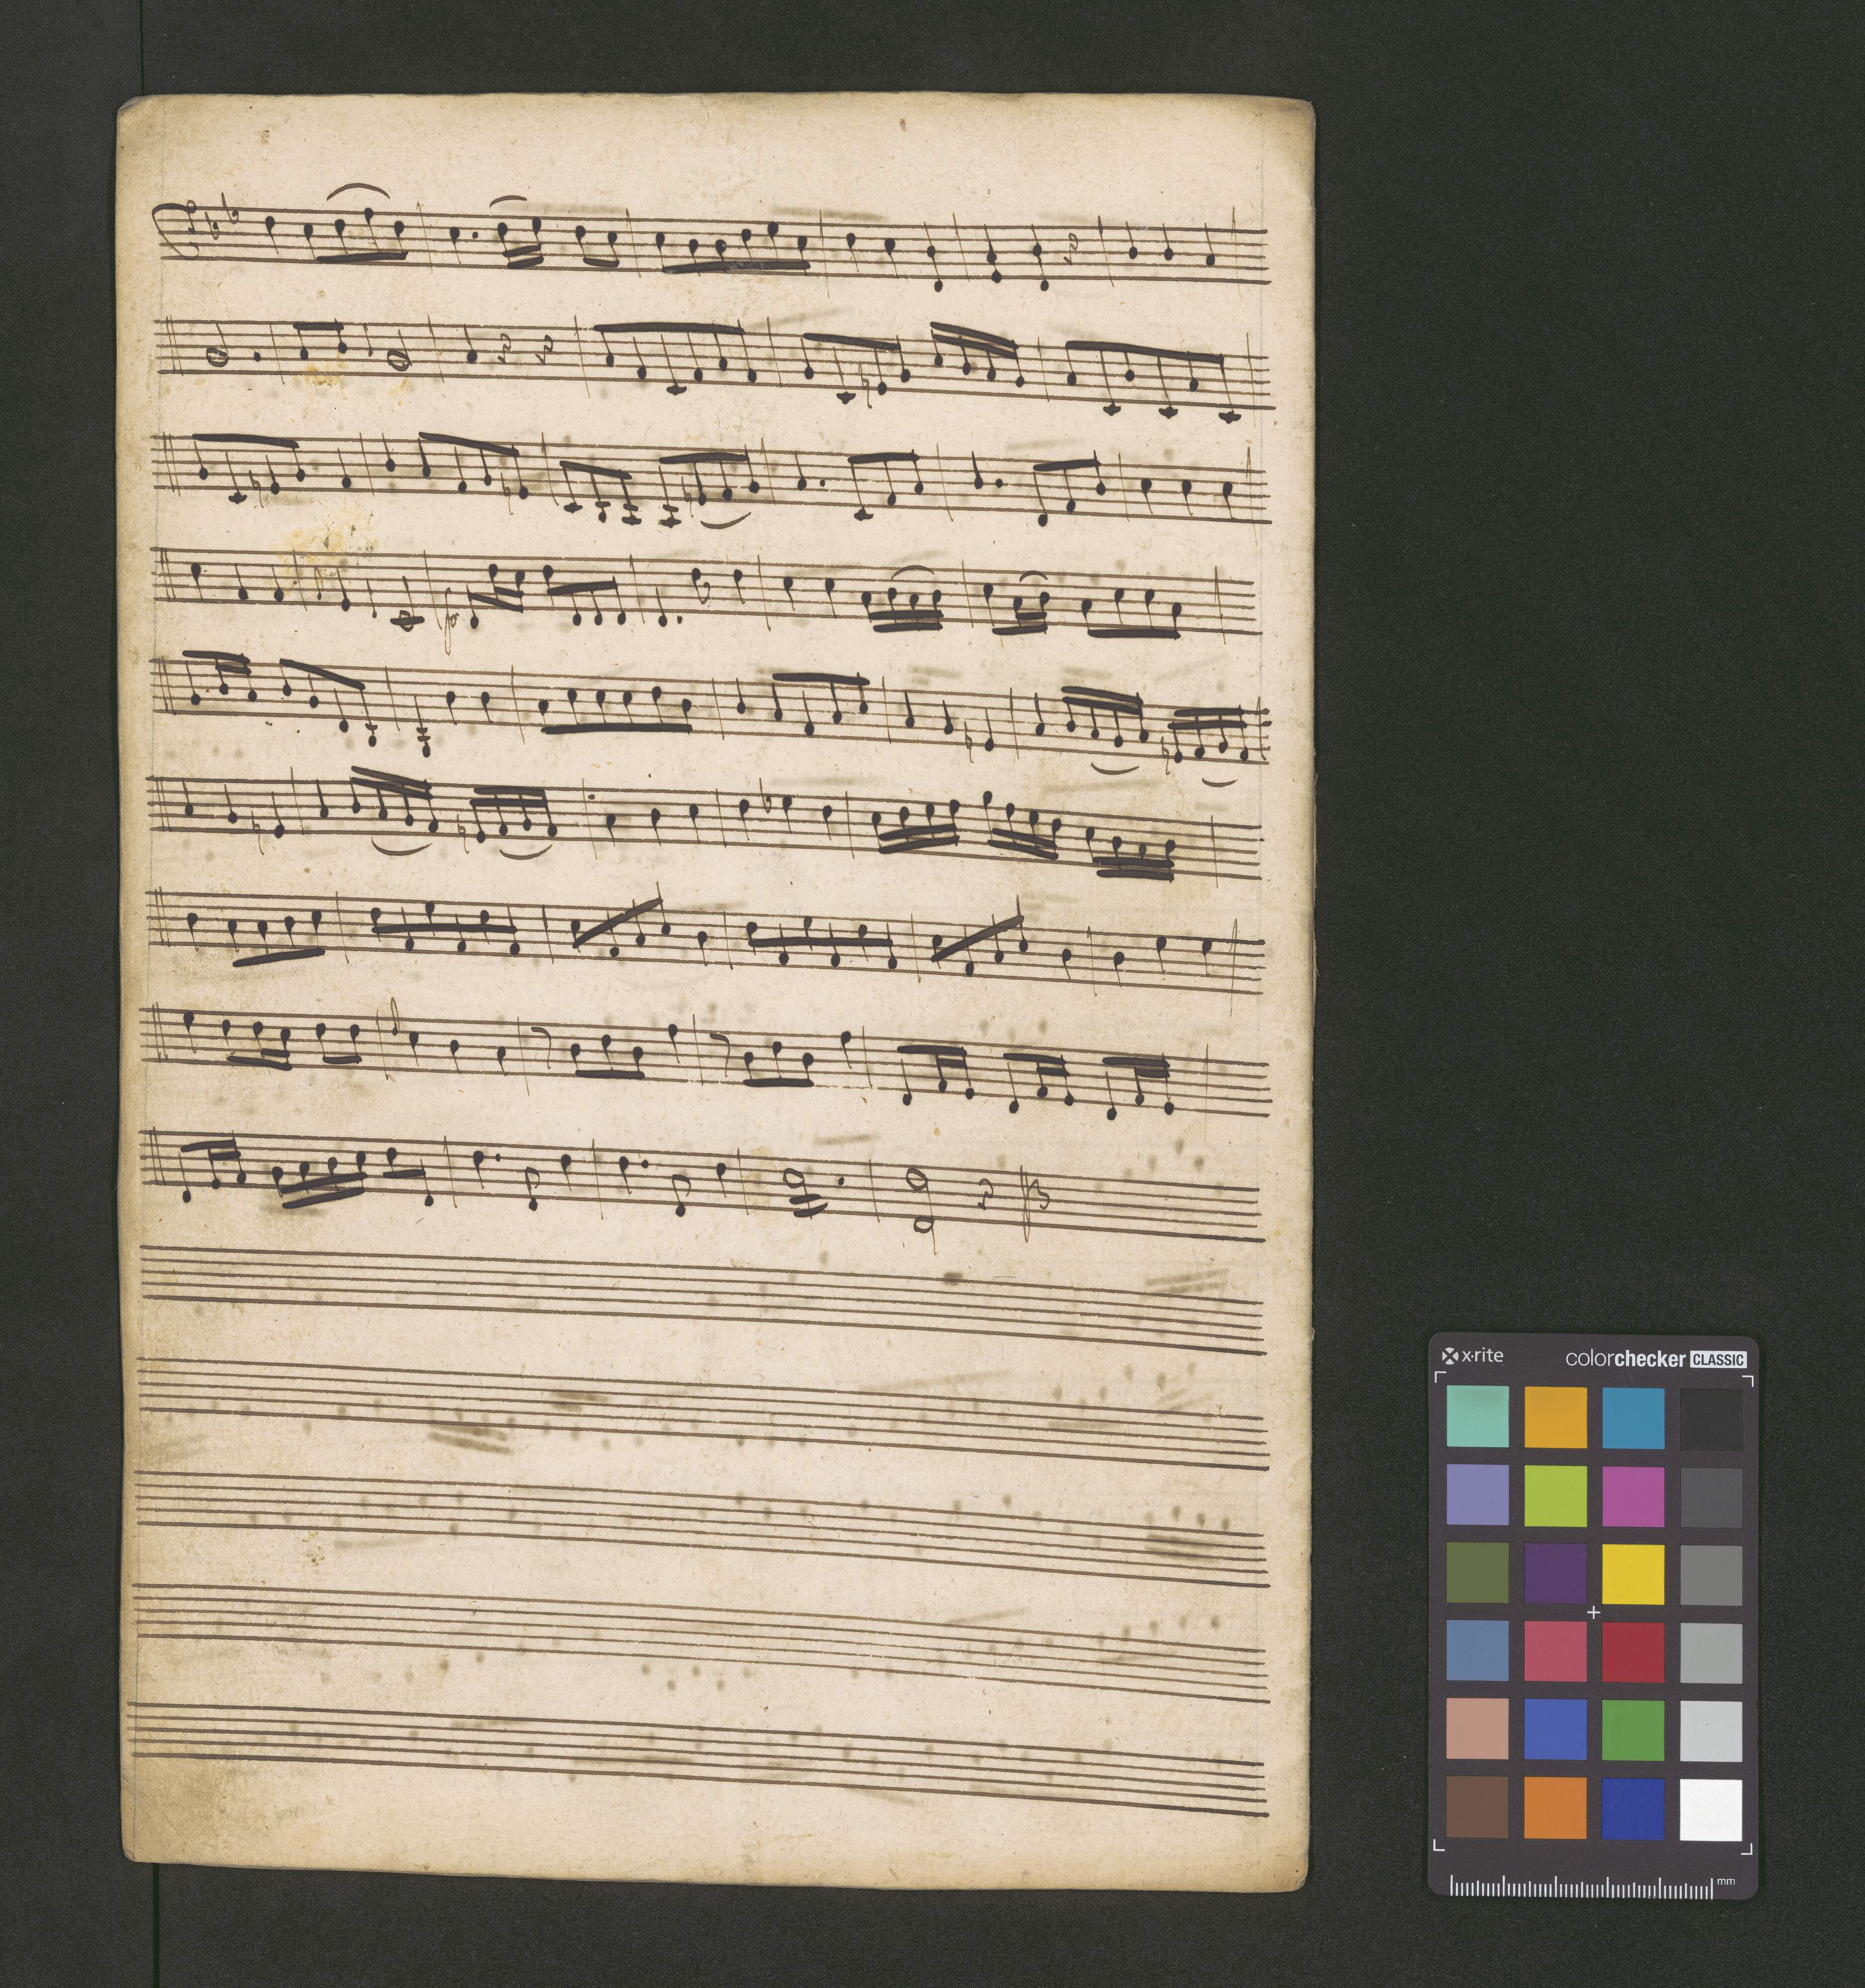 fo
x·rite colorchecker CLASSIC
mm